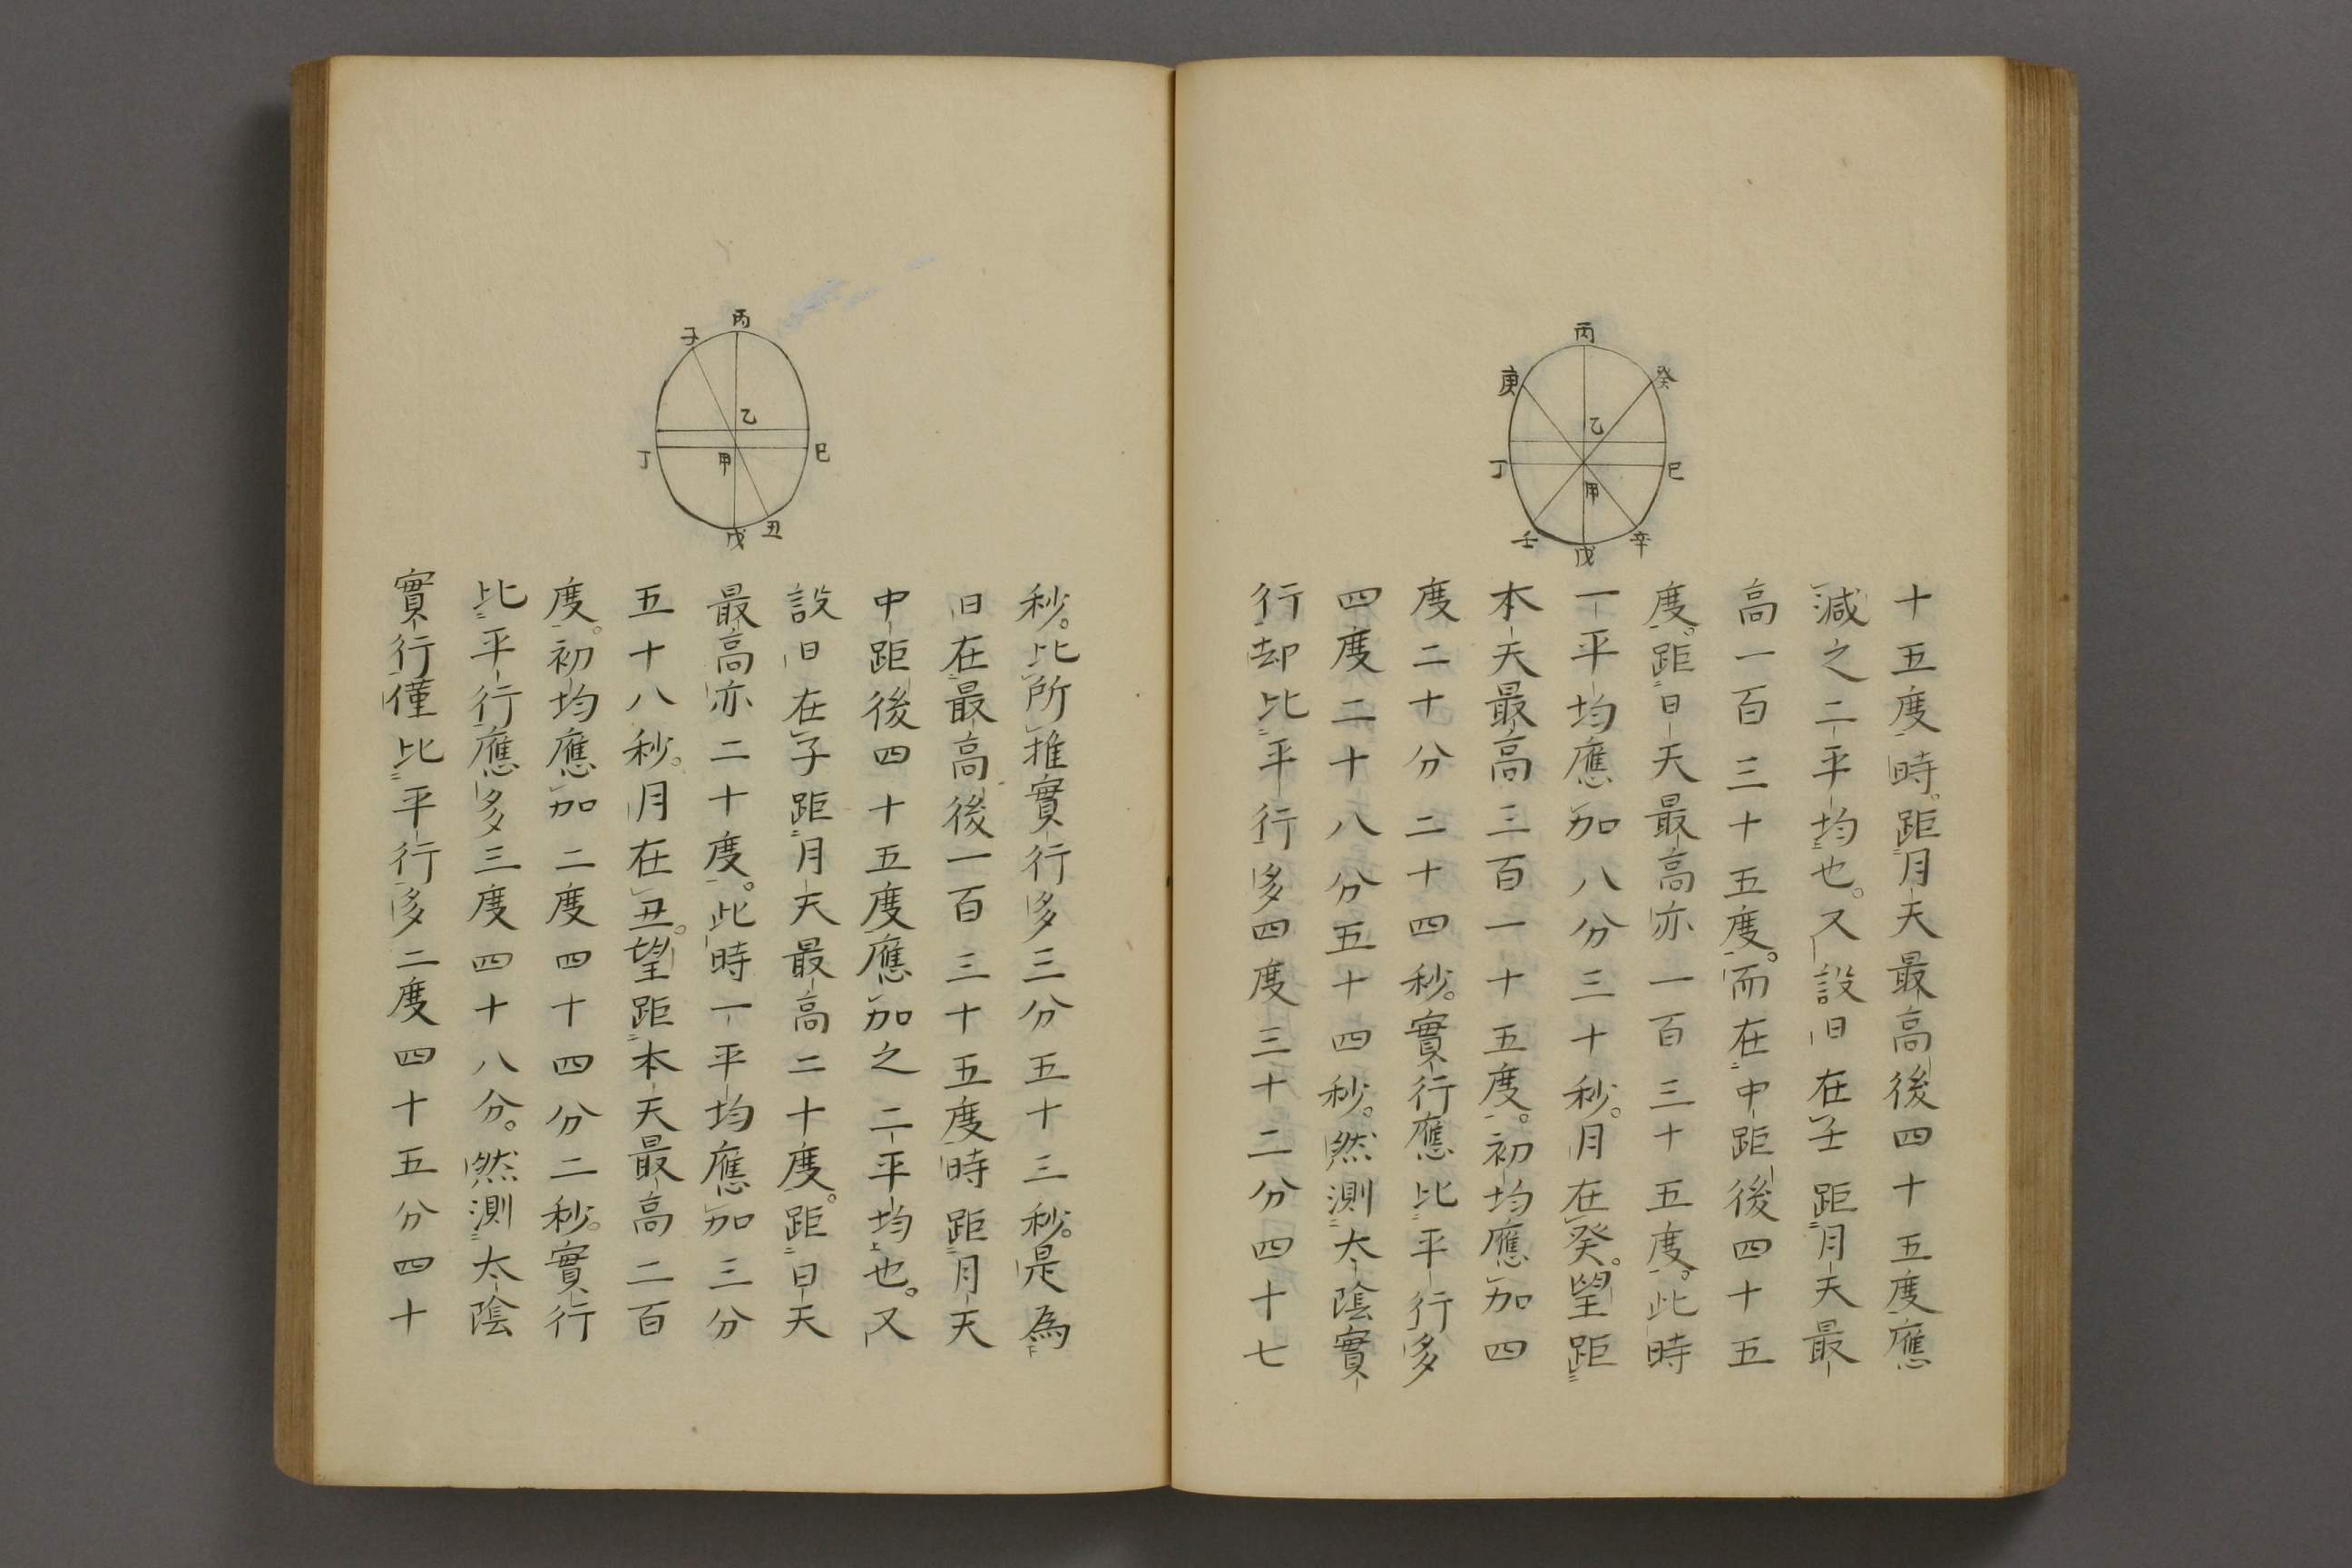 丙
庚
癸
乙
丁
巳
甲
壬
戊
辛
十五度時。距月天最高後四十五度應
減之二平均也。又設日在壬距月天最
高一百三十五度。而在中距後四十五
度。距日天最高亦一百三十五度。此時
一平均應加八分三十秒。月在癸。望距
本天最高三百一十五度。初均應加四
度二十分二十四秒。實行應比平行多
四度二十八分五十四秒。然測太陰實
行却比平行多四度三十二分四十七
丙
子
乙
丁
巳
甲
戊
丑
秒。比所推實行多三分五十三秒。是為
日在最高後一百三十五度時距月天
中距後四十五度應加之二平均也。又
設日在子距月天最高二十度。距日天
最高亦二十度。此時一平均應加三分
五十八秒。月在丑。望距本天最高二百
度。初均應加二度四十四分二秒。實行
比平行應多三度四十八分。然測太陰
實行僅比平行多二度四十五分四十